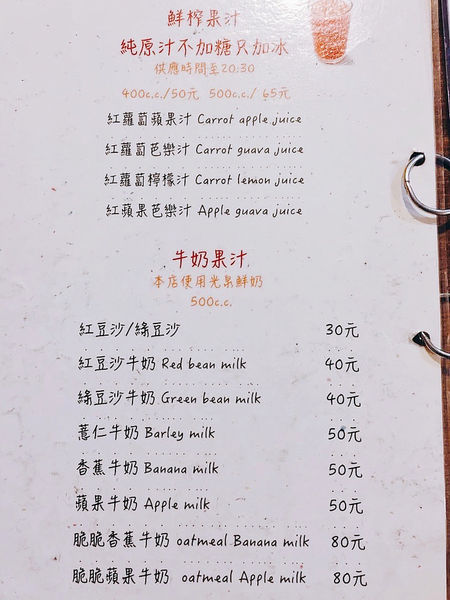 鮮榨果汁
純原汁不加糖只加冰
供應時間至20:30
400c.c./50元 500c.c./ 65元
紅蘿蔔蘋果汁 Carrot apple juice
紅蘿蔔芭樂汁 Carrot guava juice
紅蘿蔔檸檬汁 Carrot lemon juice
紅蘋果芭樂汁 Apple guava juice
牛奶果汁
本店使用光泉鮮奶
500c.c.
紅豆沙/綠豆沙 30元
紅豆沙牛奶 Red bean milk 40元
綠豆沙牛奶 Green bean milk 40元
薏仁牛奶 Barley milk 50元
香蕉牛奶 Banana milk 50元
蘋果牛奶 Apple milk 50元
脆脆香蕉牛奶 oatmeal Banana milk 80元
脆脆蘋果牛奶 oatmeal Apple milk 80元